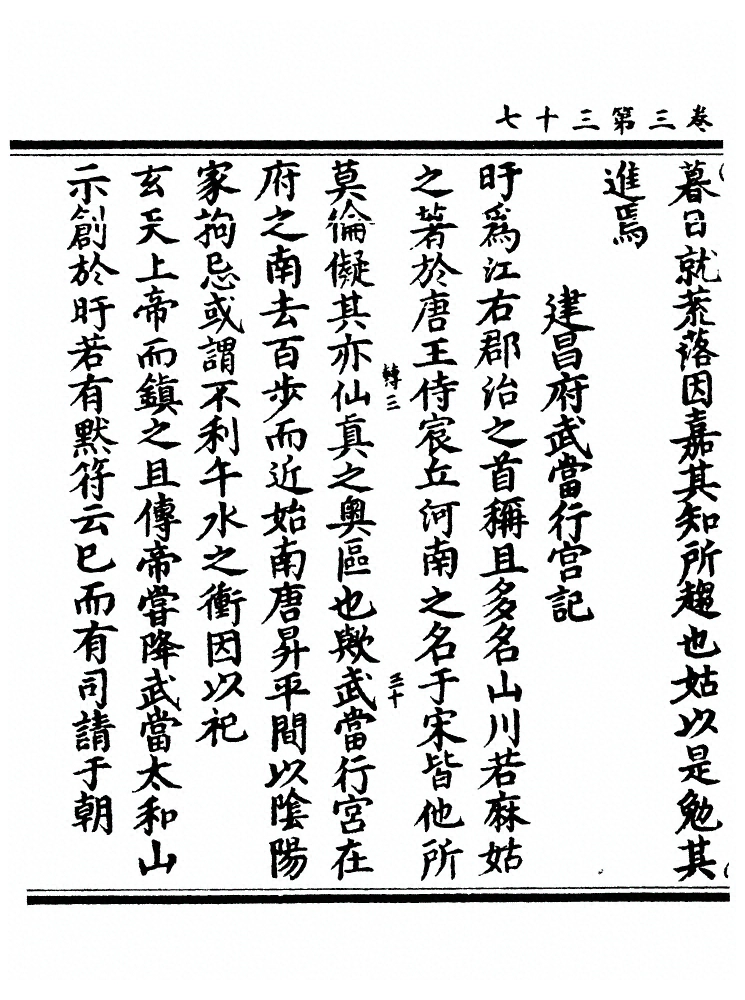 卷三第三十七
暮日就荒落因嘉其知所趨也姑以是勉其
進焉
建昌府武當行宮記
旴爲江右郡治之首稱且多名山川若麻姑
之著於唐王侍宸丘河南之名于宋皆他所
轉三
莫倫儗其亦仙眞之奧區也歟武當行宮在
府之南去百步而近始南唐昇平間以陰陽
家拘忌或謂不利午水之衝因以祀
玄天上帝而鎮之且傳帝甞降武當太和山
示創於旴若有默符云已而有司請于朝